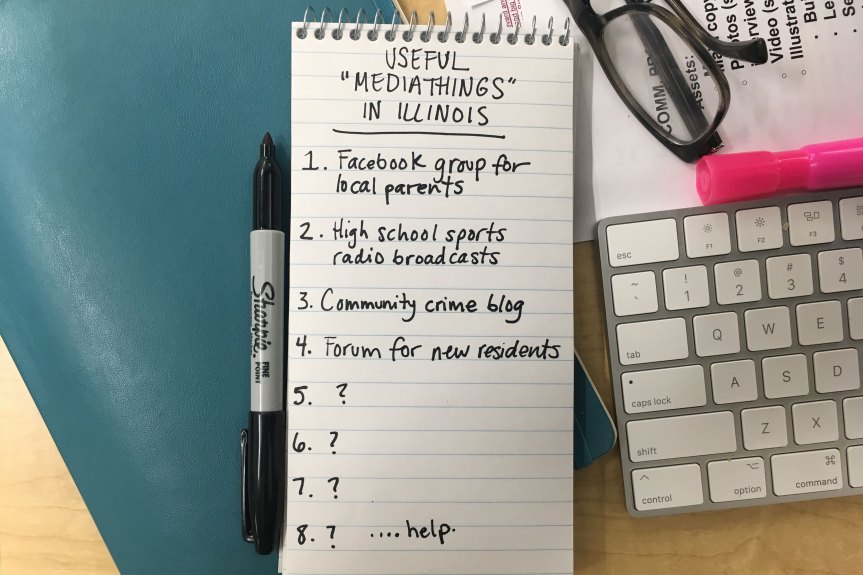 USEFUL
"MEDIATHINGS"
IN ILLINOIS
1. Facebook group for
local parents
2. High school sports
radio broadcasts
3. Community crime blog
4. Forum for new residents
5. ?
6. ?
7. ?
8. ? ....help.
Sharpie
FINE
POINT
COMM.
Assets:
Video
Illustrat
esc
F1
F2
F3
~
`
!
1
@
2
#
3
$
4
tab
Q
W
E
caps lock
A
S
D
shift
Z
X
^
control
option
⌘
command